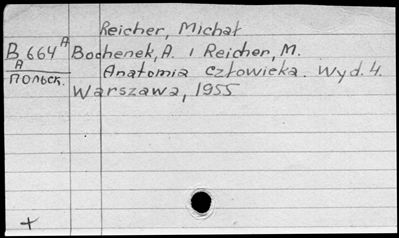 Reicher, Michał
B 664 A Bochenek, A. i Reicher, M.
A Anatomia człowieka. Wyd. 4.
польск. Warszawa, 1955
+